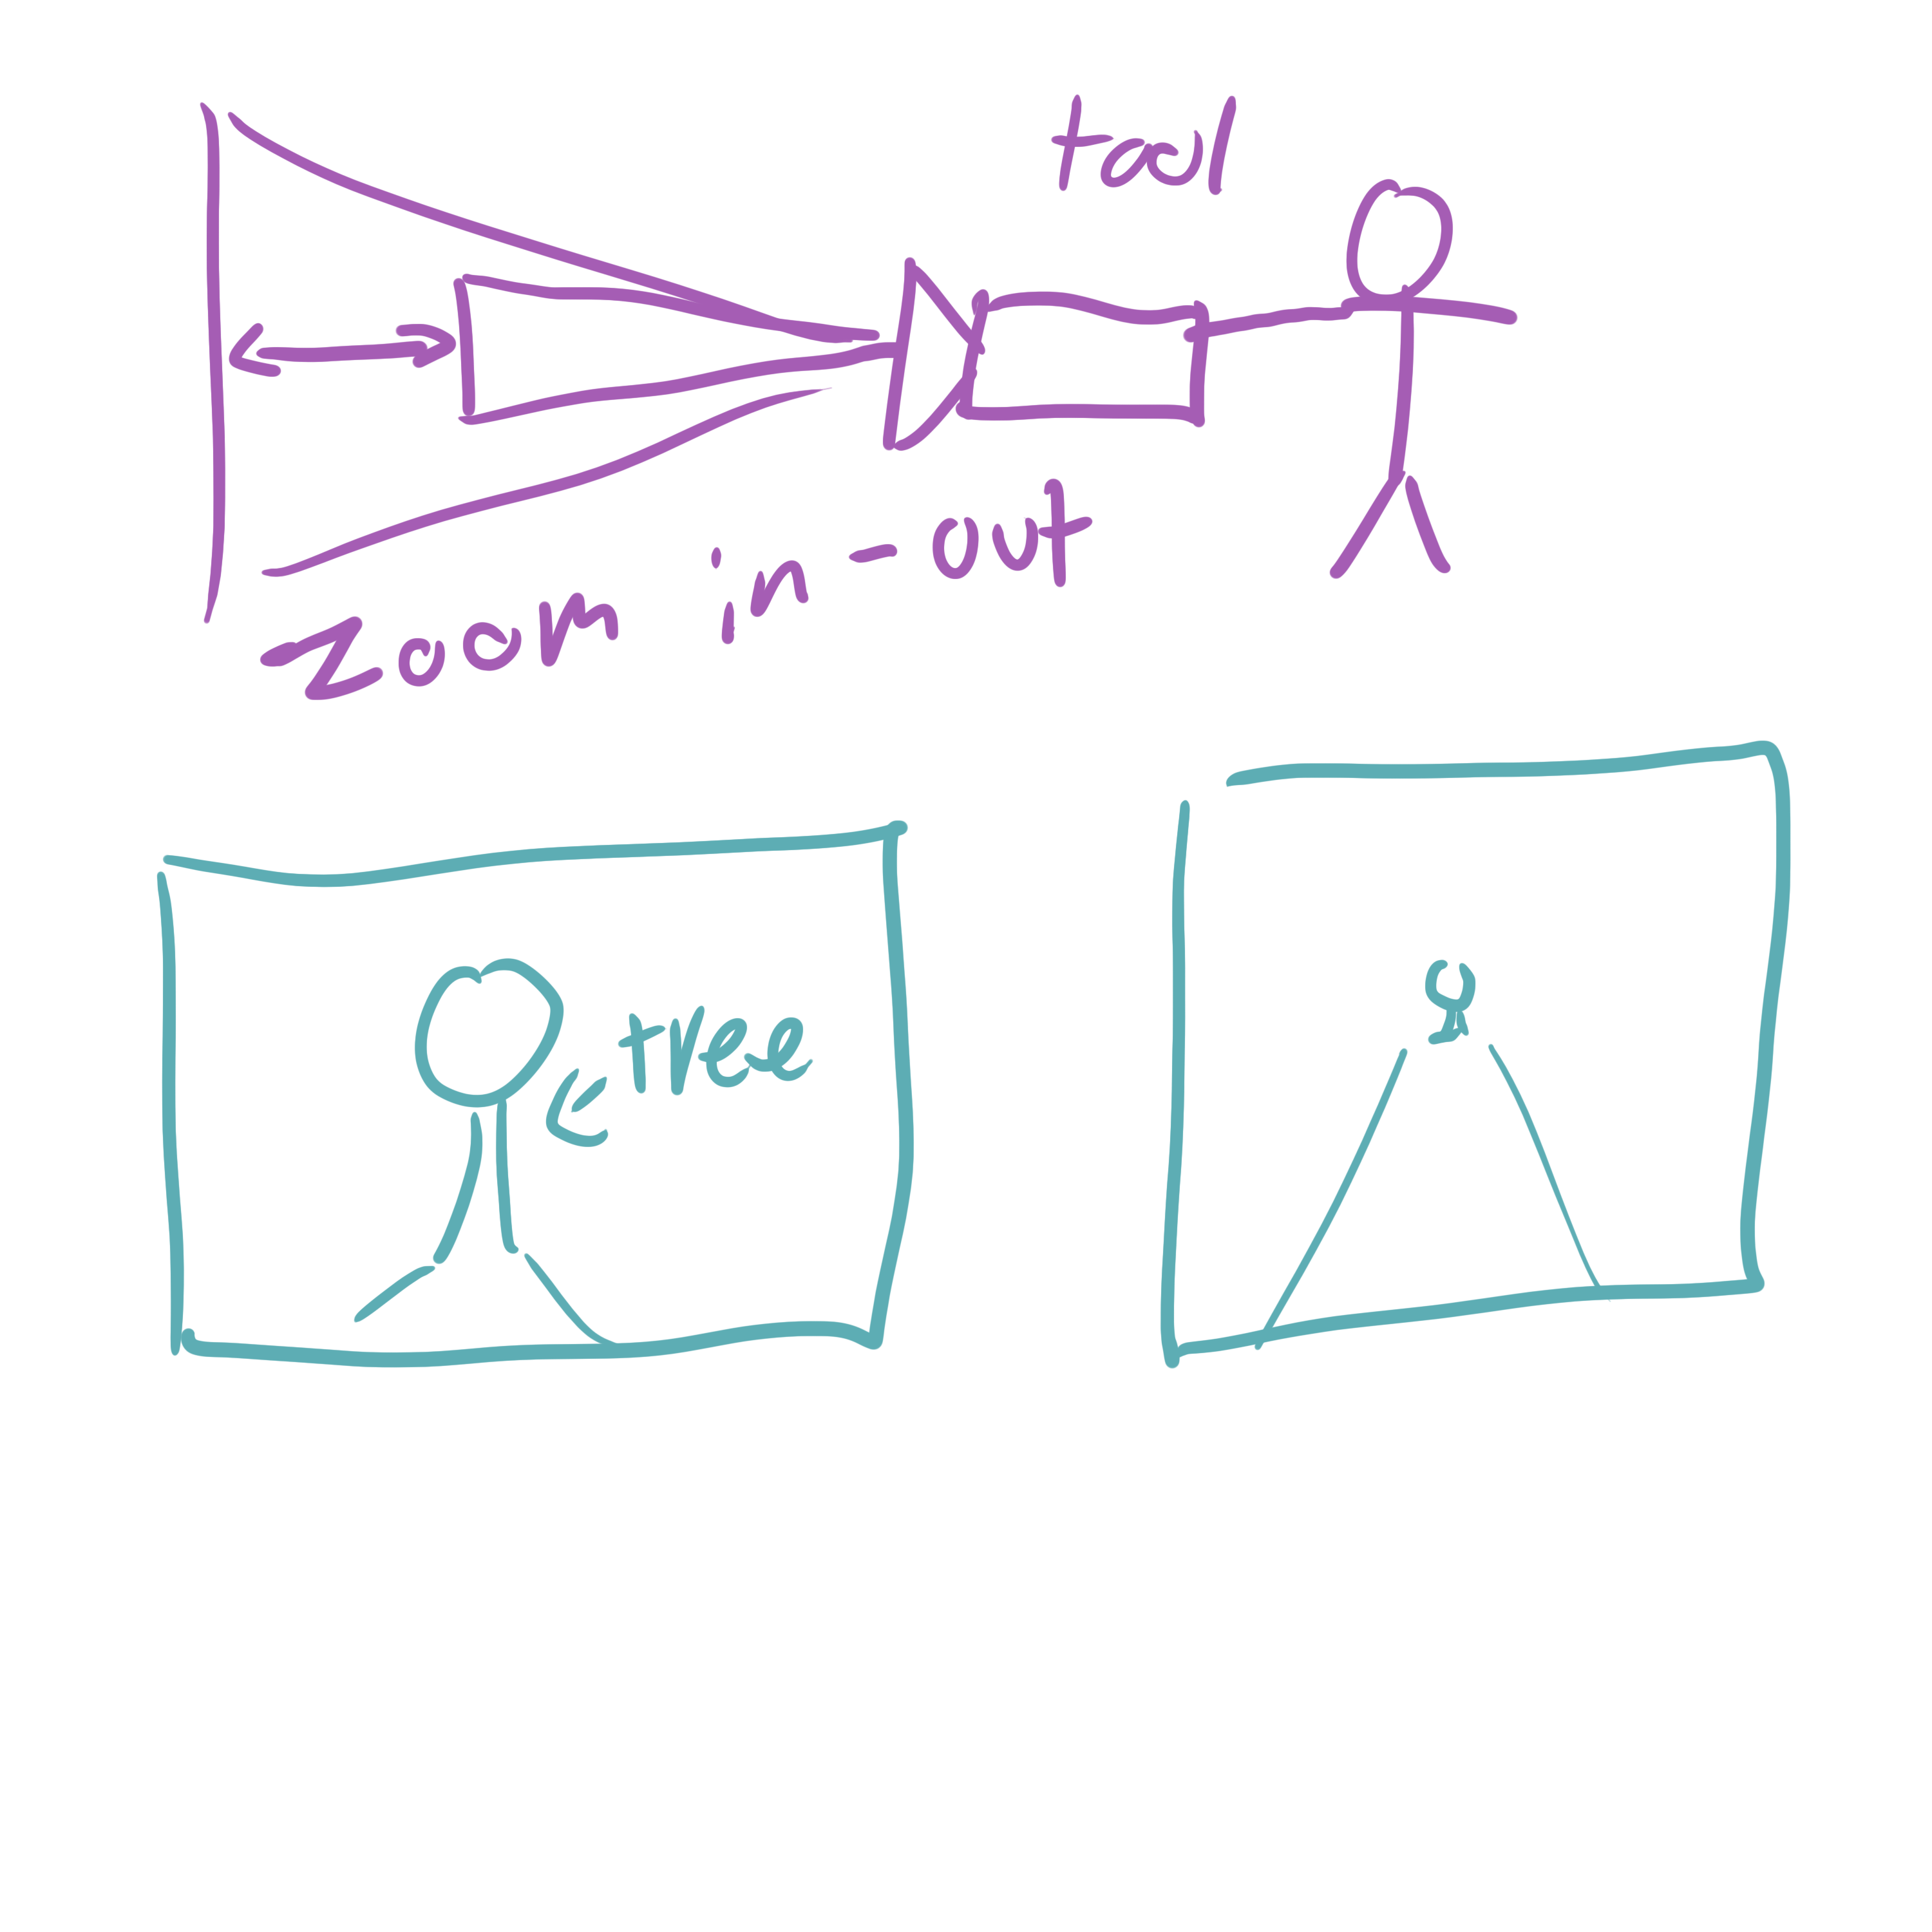 tool
zoom in-out
tree